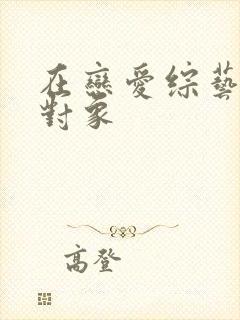 在戀愛綜藝
對象
高登